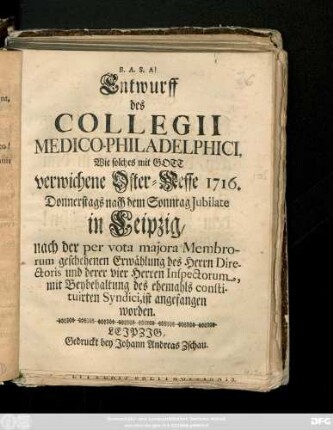 Q. A. Z. A!
Entwurff
des
COLLEGII
MEDICO-PHILADELPHICI,
Wie solches mit GOTT
verwichene Oster-Messe 1716.
Donnerstags nach dem Sonntag Jubilate
in Leipzig,
nach der per vota majora Membro-
rum geschehenen Erwählung des Herrn Dire-
ctoris und derer vier Herren Inspectorum,
mit Beybehaltung des ehemahls consti-
tuirten Syndici, ist angefangen
worden.
LEIPZIG,
Gedruckt bey Johann Andreas Zschau.